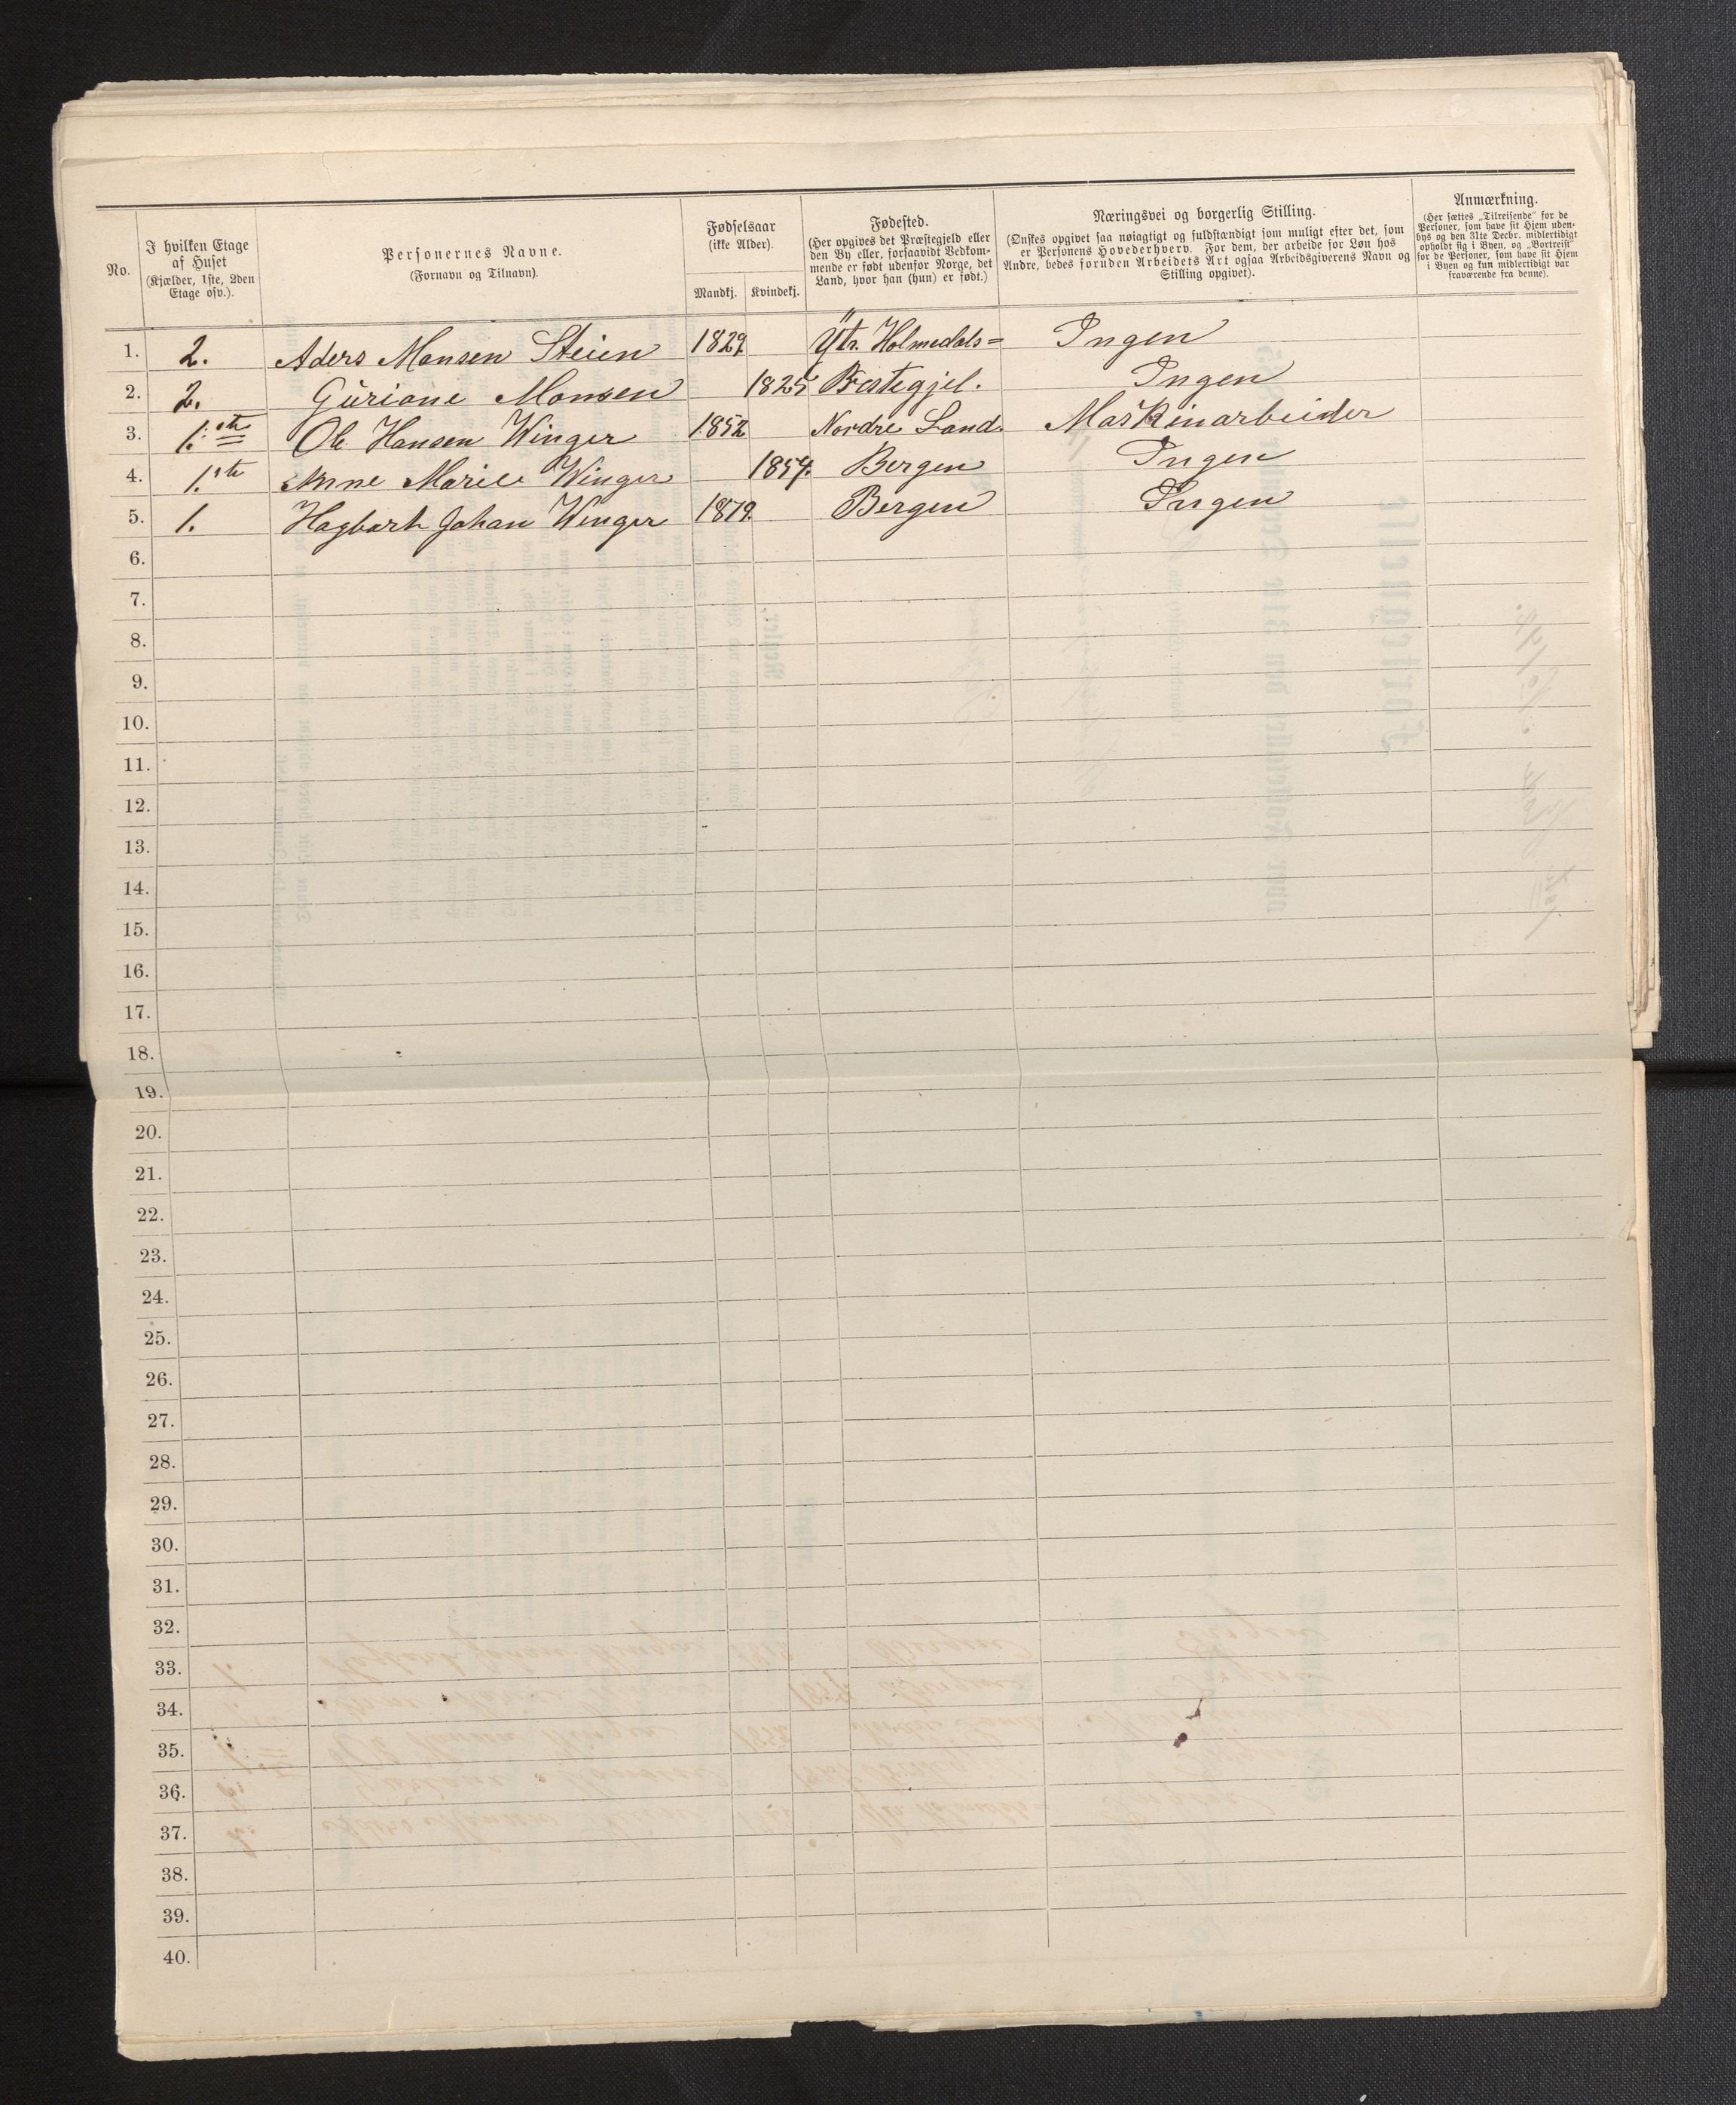 No.
I hvilken Etage
af Huset
(Kjælder, 1ste, 2den
Etage osv.).
Personernes Navne.
(Fornavn og Tilnavn).
Fødselsaar
(ikke Alder).
Mandkj. Kvindekj.
Fødested.
(Her opgives det Præstegjeld eller
den By eller, forsaavidt Vedkom-
mende er født udenfor Norge, det
Land, hvor han (hun) er født.)
Næringsvei og borgerlig Stilling.
(Ønskes opgivet saa nøiagtigt og fuldstændigt som muligt efter det, som
er Personens Hovederhverv. For dem, der arbeide for Løn hos
Andre, bedes foruden Arbeidets Art ogsaa Arbeidsgiverens Navn og
Stilling opgivet).
Anmærkning.
(Her sættes „Tilreisende" for de
Personer, som have sit Hjem uden-
bys og den 31te Decbr. midlertidigt
opholdt sig i Byen, og „Bortreist"
for de Personer, som have sit Hjem
i Byen og kun midlertidigt var
fraværende fra denne).
1. 2. Aders Monsen Steien 1829 Ytr. Holmedals= Ingen
2. 2. Güriane Monsen 1825 Præstegjel. Ingen
3. 1.ste Ole Hansen Winger 1852 Nordre Land. Maskinarbeider
4. 1.ste Anne Marie Winger 1854. Bergen Ingen
5. 1. Hagbart Johan Winger 1879. Bergen Ingen
6.
7.
8.
9.
10.
11.
12.
13.
14.
15.
16.
17.
18.
19.
20.
21.
22.
23.
24.
25.
26.
27.
28.
29.
30.
31.
32.
33.
34.
35.
36.
37.
38.
39.
40.